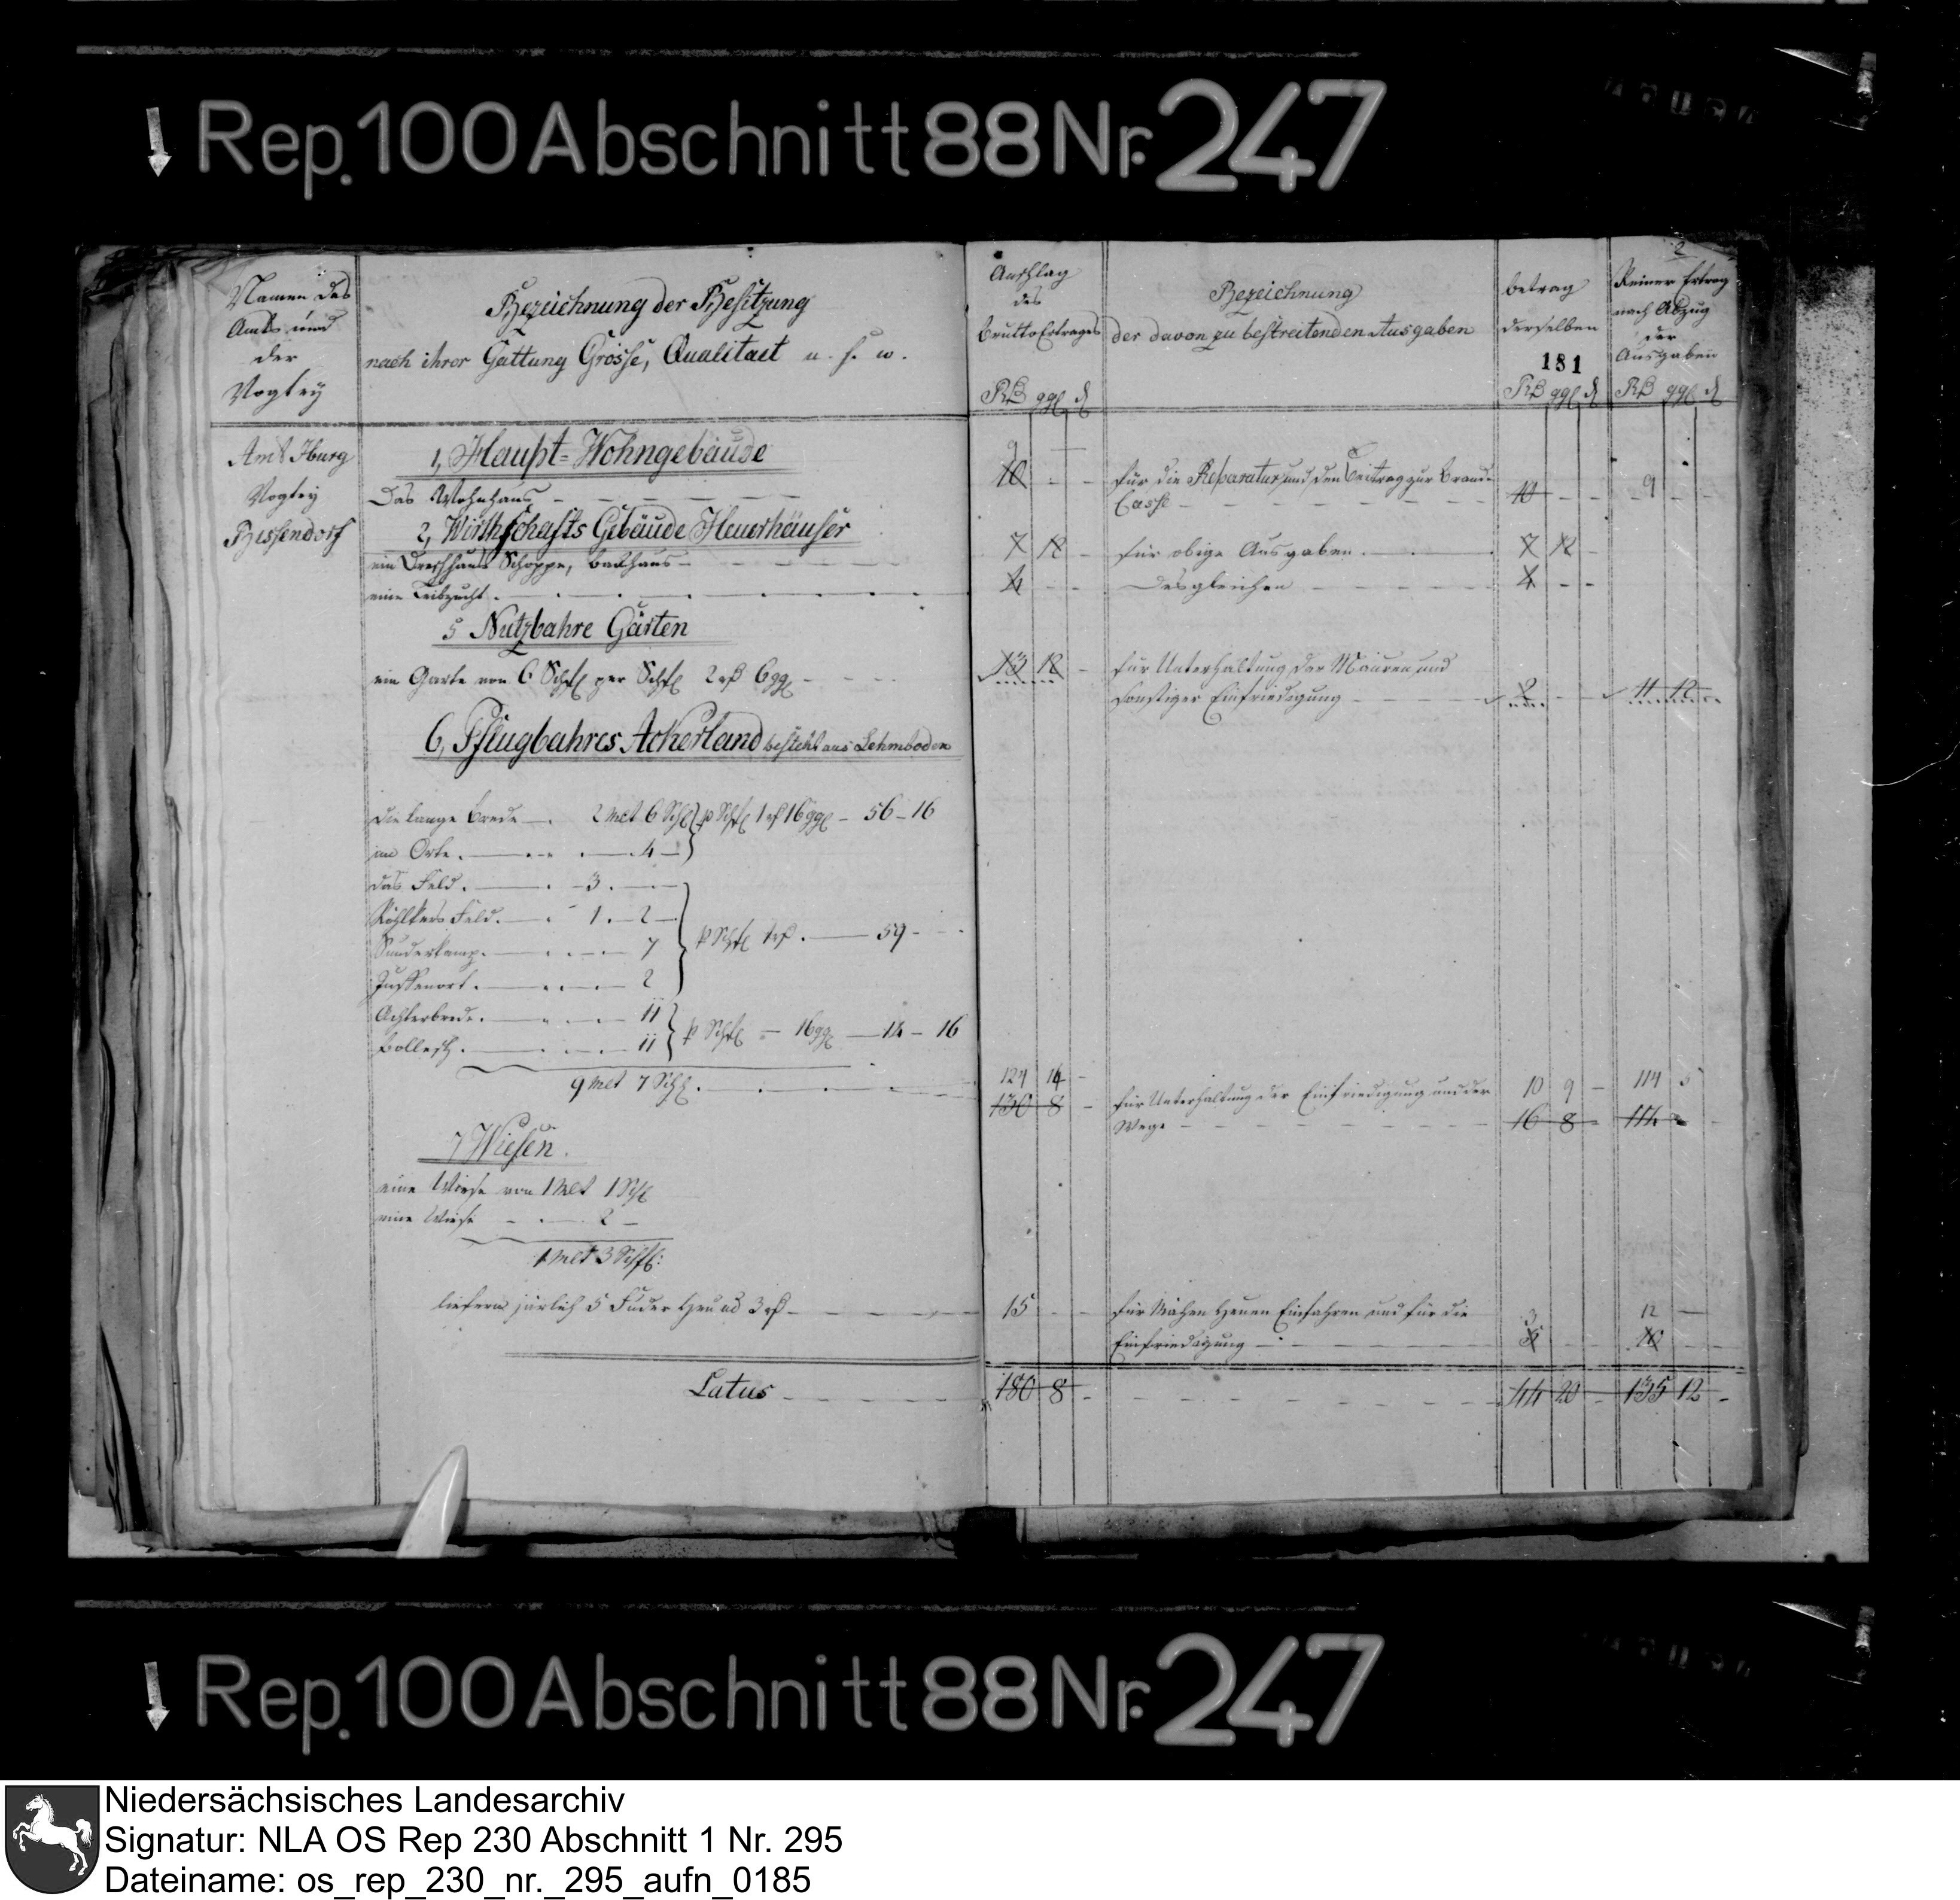 Rep. 100 Abschnitt 88 Nr. 247
2
Namen des
Amts und
der
Vogtey
Bezeichnung der Besitzung
nach ihrer Gattung Grösse, Qualitaet u. s. w.
Anschlag
des
Brutto Ertrages
Bezeichnung
der davon zu bestreitenden Ausgaben
betrag
derselben
181
Reiner Ertrag
nach Abzug
der
Ausgaben
Rß ggl d
Rß ggl d
Rß ggl d
Amt Iburg
Vogtey
Bissendorf
1, Haupt-Wohngebäude
9 —
Das Wohnhaus — 10 - - für die Reparatur und den Beitrag zur Brand-
Casse — 10 - - 9 - -
2, Wirthschafts Gebäude Heuerhäuser
ein Dreschhaus Schoppe, Backhaus — 7 12 - für obige Ausgaben. — 7 12 -
eine Leibzucht. — 4 - - desgleichen — 4 - -
5 Nutzbahre Gärten
ein Garte von 6 Schfl per Schfl 2 rß 6 ggl — 13 12 - für Unterhaltung der Mauren und
sonstiger Einfriedigung — 2 - - 11 12 -
6, Pflugbahres Ackerland besteht aus Lehmboden
die lange Brede — 2 Mlt 6 Schfl } p Schfl 1 rß 16 ggl — 56 - 16
im Orte. — 4 —
das Feld. — 3. —
Feld. — 1. — 2 —
Sunderkamp. — 7 } p Schfl 1 rß. — 59 -
— 2
Achterbrede. — 11 } p Schfl — 16 ggl — 14 - 16
Bollesch. — 11
9 Mlt 7 Schfl. — 124 14 - 10 9 - 114 5
130 8 - für Unterhaltung der Einfriedigung und der
Wege — 16 8 - 114 -
7 Wiesen.
eine Wiese von 1 Mlt 1 Schfl
eine Wiese — 2 —
1 Mlt 3 Schfl:
liefern järlich 5 Fuder Heu ad 3 rß — 15 - - für Mähen Heuen Einfahren und für die 3 12 —
Einfriedigung — 5 - - 10 - -
Latus — 180 8 - 44 20 - 135 12 -
Rep. 100 Abschnitt 88 Nr. 247
Niedersächsisches Landesarchiv
Signatur: NLA OS Rep 230 Abschnitt 1 Nr. 295
Dateiname: os_rep_230_nr._295_aufn_0185